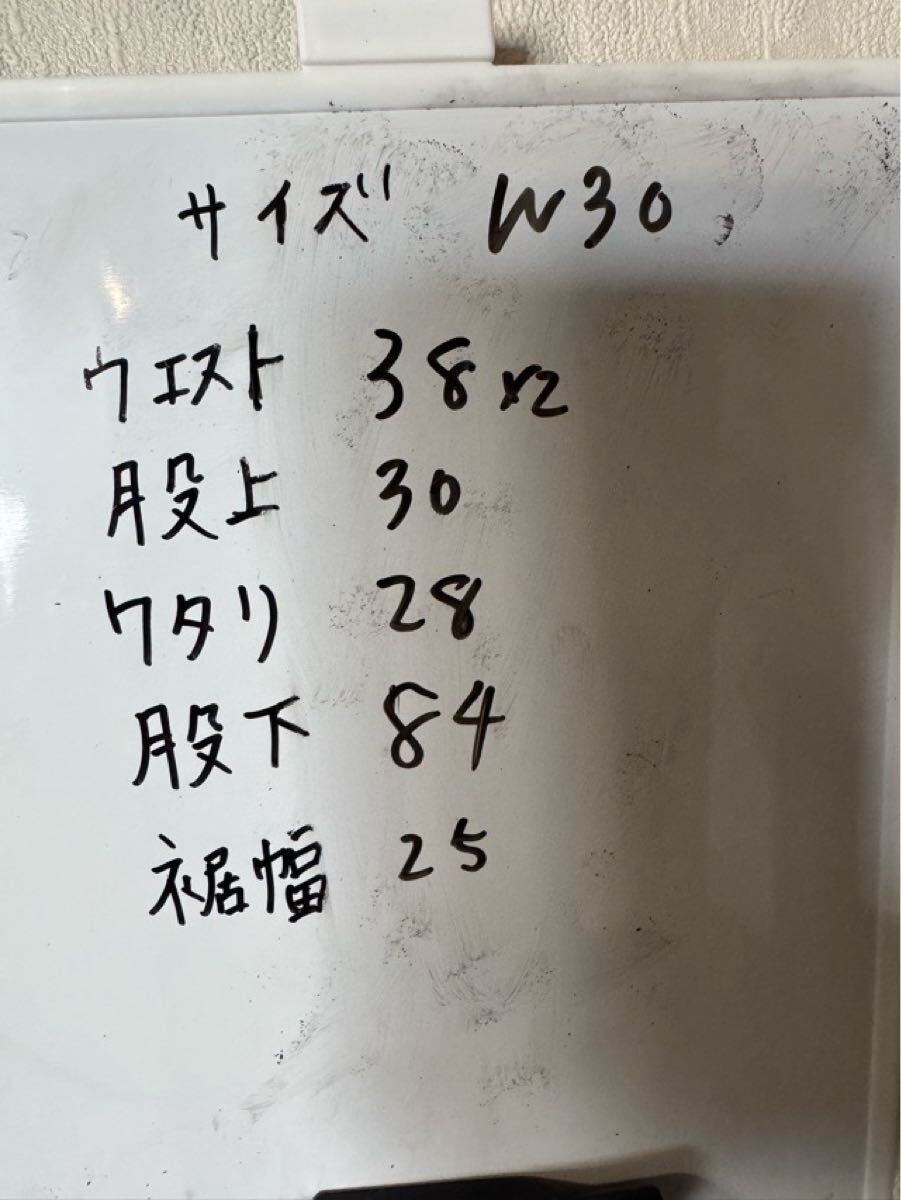 サイズ W30
ウエスト 38x2
股上 30
ワタリ 28
股下 84
裾幅 25